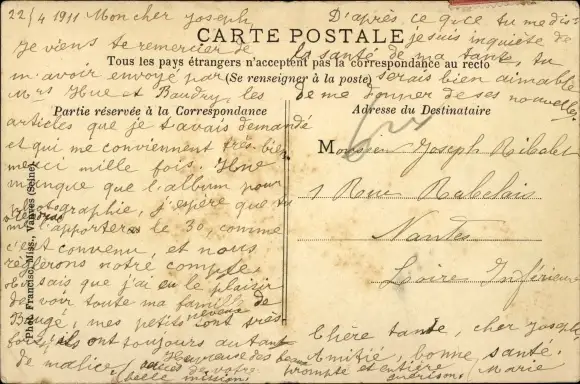 22/4 1911 Mon cher Joseph
Je viens te remercier de
m'avoir envoyé par
Mrs Hue et Baudry, les
articles que je t'avais demandé
et qui me conviennent très bien
merci mille fois. Il ne
manque que l'album pour
photographie, j'espère que tu
me l'apporteras le 30, comme
c'est convenu, et nous
règlerons notre compte.
Tu sais que j'ai eu le plaisir
de voir toute ma famille de
Baugé, mes petits neveux sont très
forts, ils ont toujours autant
de malice,
D'après ce que tu me dis
je suis inquiète de
la santé de ma tante, tu
serais bien aimable
de me donner de ses nouvelles
CARTE POSTALE
Tous les pays étrangers n'acceptent pas la correspondance au recto
(Se renseigner à la poste)
Partie réservée à la Correspondance
Adresse du Destinataire
Monsieur Joseph
1 Rue Rabelais
Nantes
Loire Inférieure
Heureuse des
de votre
belle mission
prompte et entière
Chère tante, cher Joseph
Amitié, bonne santé.
Marie
Phot. Francisc. Miss., Vanves (Seine)